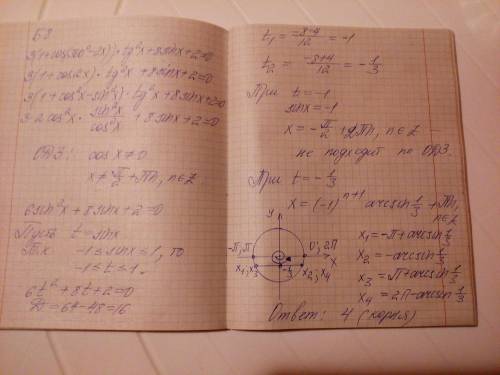 Б8
3(1+cos(360°-2x))·tg²x+8sinx+2=0
3(1+cos2x)·tg²x+8sinx+2=0
3(1+cos²x-sin²x)·tg²x+8sinx+2=0
3·2cos²x·sin²x/cos²x+8sinx+2=0
ОДЗ: cosx≠0
x≠π/2+πn, n∈Z
6sin²x+8sinx+2=0
Пусть t=sinx
Т.к. -1≤sinx≤1, то
-1≤t≤1.
6t²+8t+2=0
D=64-48=16
t₁=(-8-4)/12=-1
t₂=(-8+4)/12=-1/3
При t=-1
sinx=-1
x=-π/2+2πn, n∈Z —
не подходит по ОДЗ.
При t=-1/3
x=(-1)ⁿ⁺¹ arcsin 1/3+πn, n∈Z
y
-π, π
0; 2π
x
x₁, x₃
-1/3
x₂, x₄
x₁=-π+arcsin 1/3
x₂=-arcsin 1/3
x₃=π+arcsin 1/3
x₄=2π-arcsin 1/3
Ответ: 4 (корня)